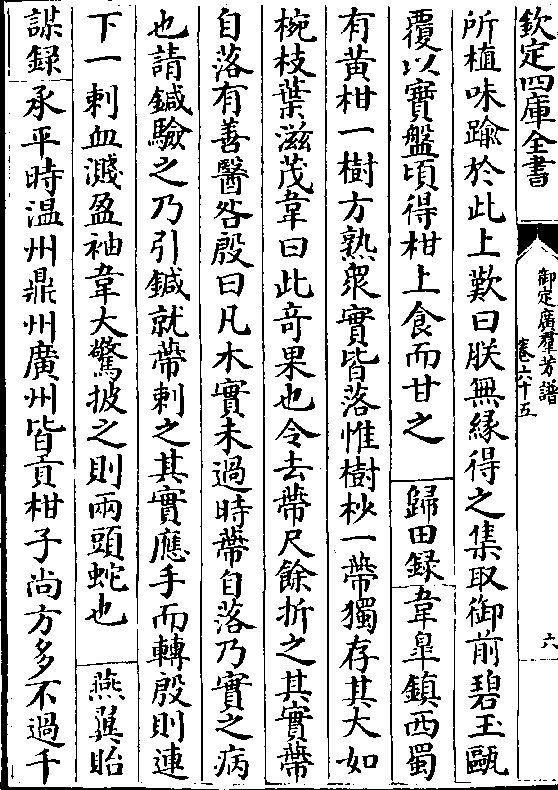 欽定四庫全書
御定廣羣芳譜
卷六十五
六
所植味踰於此上歎曰朕無縁得之集取御前碧玉甌
覆以寶盤頃得柑上食而甘之 歸田録韋臯鎮西蜀
有黄柑一樹方熟衆實皆落惟樹杪一蔕獨存其大如
椀枝葉滋茂韋曰此竒果也令去蔕尺餘折之其實蔕
自落有善醫咎殷曰凡木實未過時蔕自落乃實之病
也請鍼驗之乃引鍼就蔕刺之其實應手而轉殷則連
下一刺血濺盈袖韋大驚披之則兩頭蛇也 燕翼貽
謀録承平時温州鼎州廣州皆貢柑子尚方多不過千